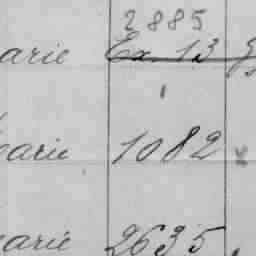 2885
arie Ex. 13
arie 1082
arie 2635